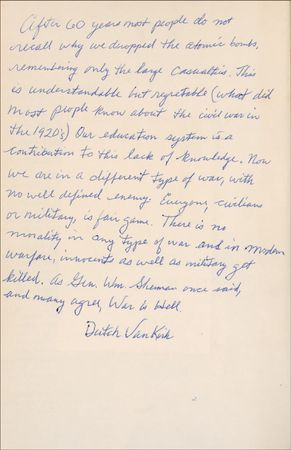 After 60 years most people do not
recall why we dropped the atomic bombs,
remembering only the large casualties. This
is understandable but regretable (what did
most people know about the civil war in
the 1920's) Our education system is a
contribution to this lack of knowledge. Now
we are in a different type of war, with
no well defined enemy. Everyone, civilians
or military, is fair game. There is no
morality in any type of war and in modern
warfare, innocents as well as military get
killed. As Gen. Wm. Sherman once said,
and many agree, War is Hell.
Dutch VanKirk